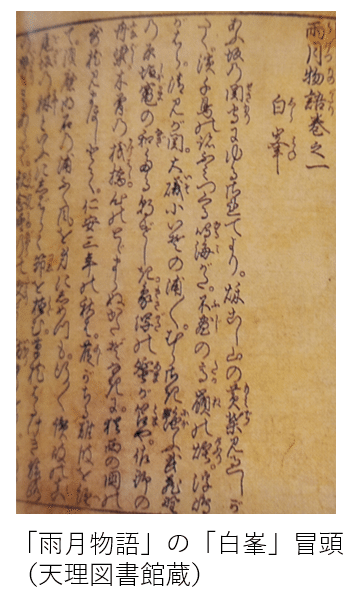 雨月物語巻之一
白峯
あふ坂の関守にゆるされてより。秌こし山の黄葉見過しが
たく。濱千鳥の跡ふみつくる鳴海がた。不尽の高嶺の煙。浮嶋
がはら。清見が関。大磯小いその浦々。むらさき艶ふ武蔵野
の原。塩竃の和たる朝げしき。象潟の蜑が苫や。佐野の
舟梁。木曽の桟橋。心のとゞまらぬかたぞなきに。猶西の国の
哥枕見まほしとて。仁安三年の秋は。葭がちる難波を経
て。須磨明石の浦ふく風を身にしめつも。行々讃岐の真
尾坂の林といふにしばらく笻を植む。草枕はるけき旅路の
「雨月物語」の「白峯」冒頭
（天理図書館蔵）